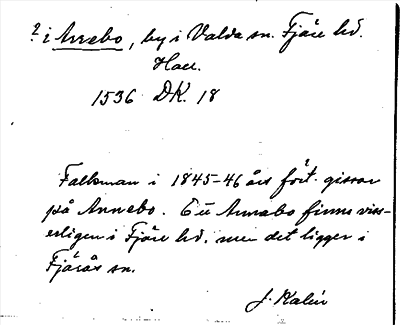 ? i Annebo, by i Valda sn. Fjäre hd.
Hall.
1536 DK. 18
Falkman i 1845-46 års fört. gissar
på Annebo. Ett Annebo finns viss-
erligen i Fjäre hd. men det ligger i
Fjärås sn.
J. Kalén